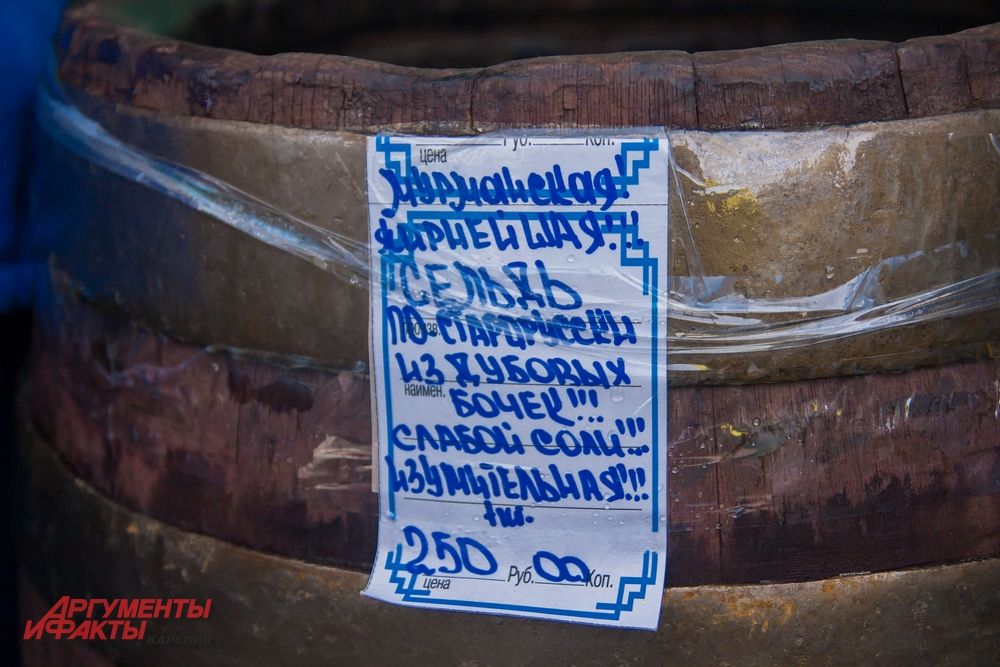 цена Руб. Коп.
Мурманская
Жирнейшая!!!
СЕЛЬДЬ
ПО-СТАРОРУССКИ
ИЗ ДУБОВЫХ
наимен.
БОЧЕК!!!
СЛАБОЙ СОЛИ!!!
ИЗУМИТЕЛЬНАЯ!!!
1кг.
250 Руб. 00 Коп.
цена
АРГУМЕНТЫ
И ФАКТЫ
КАРЕЛИЯ